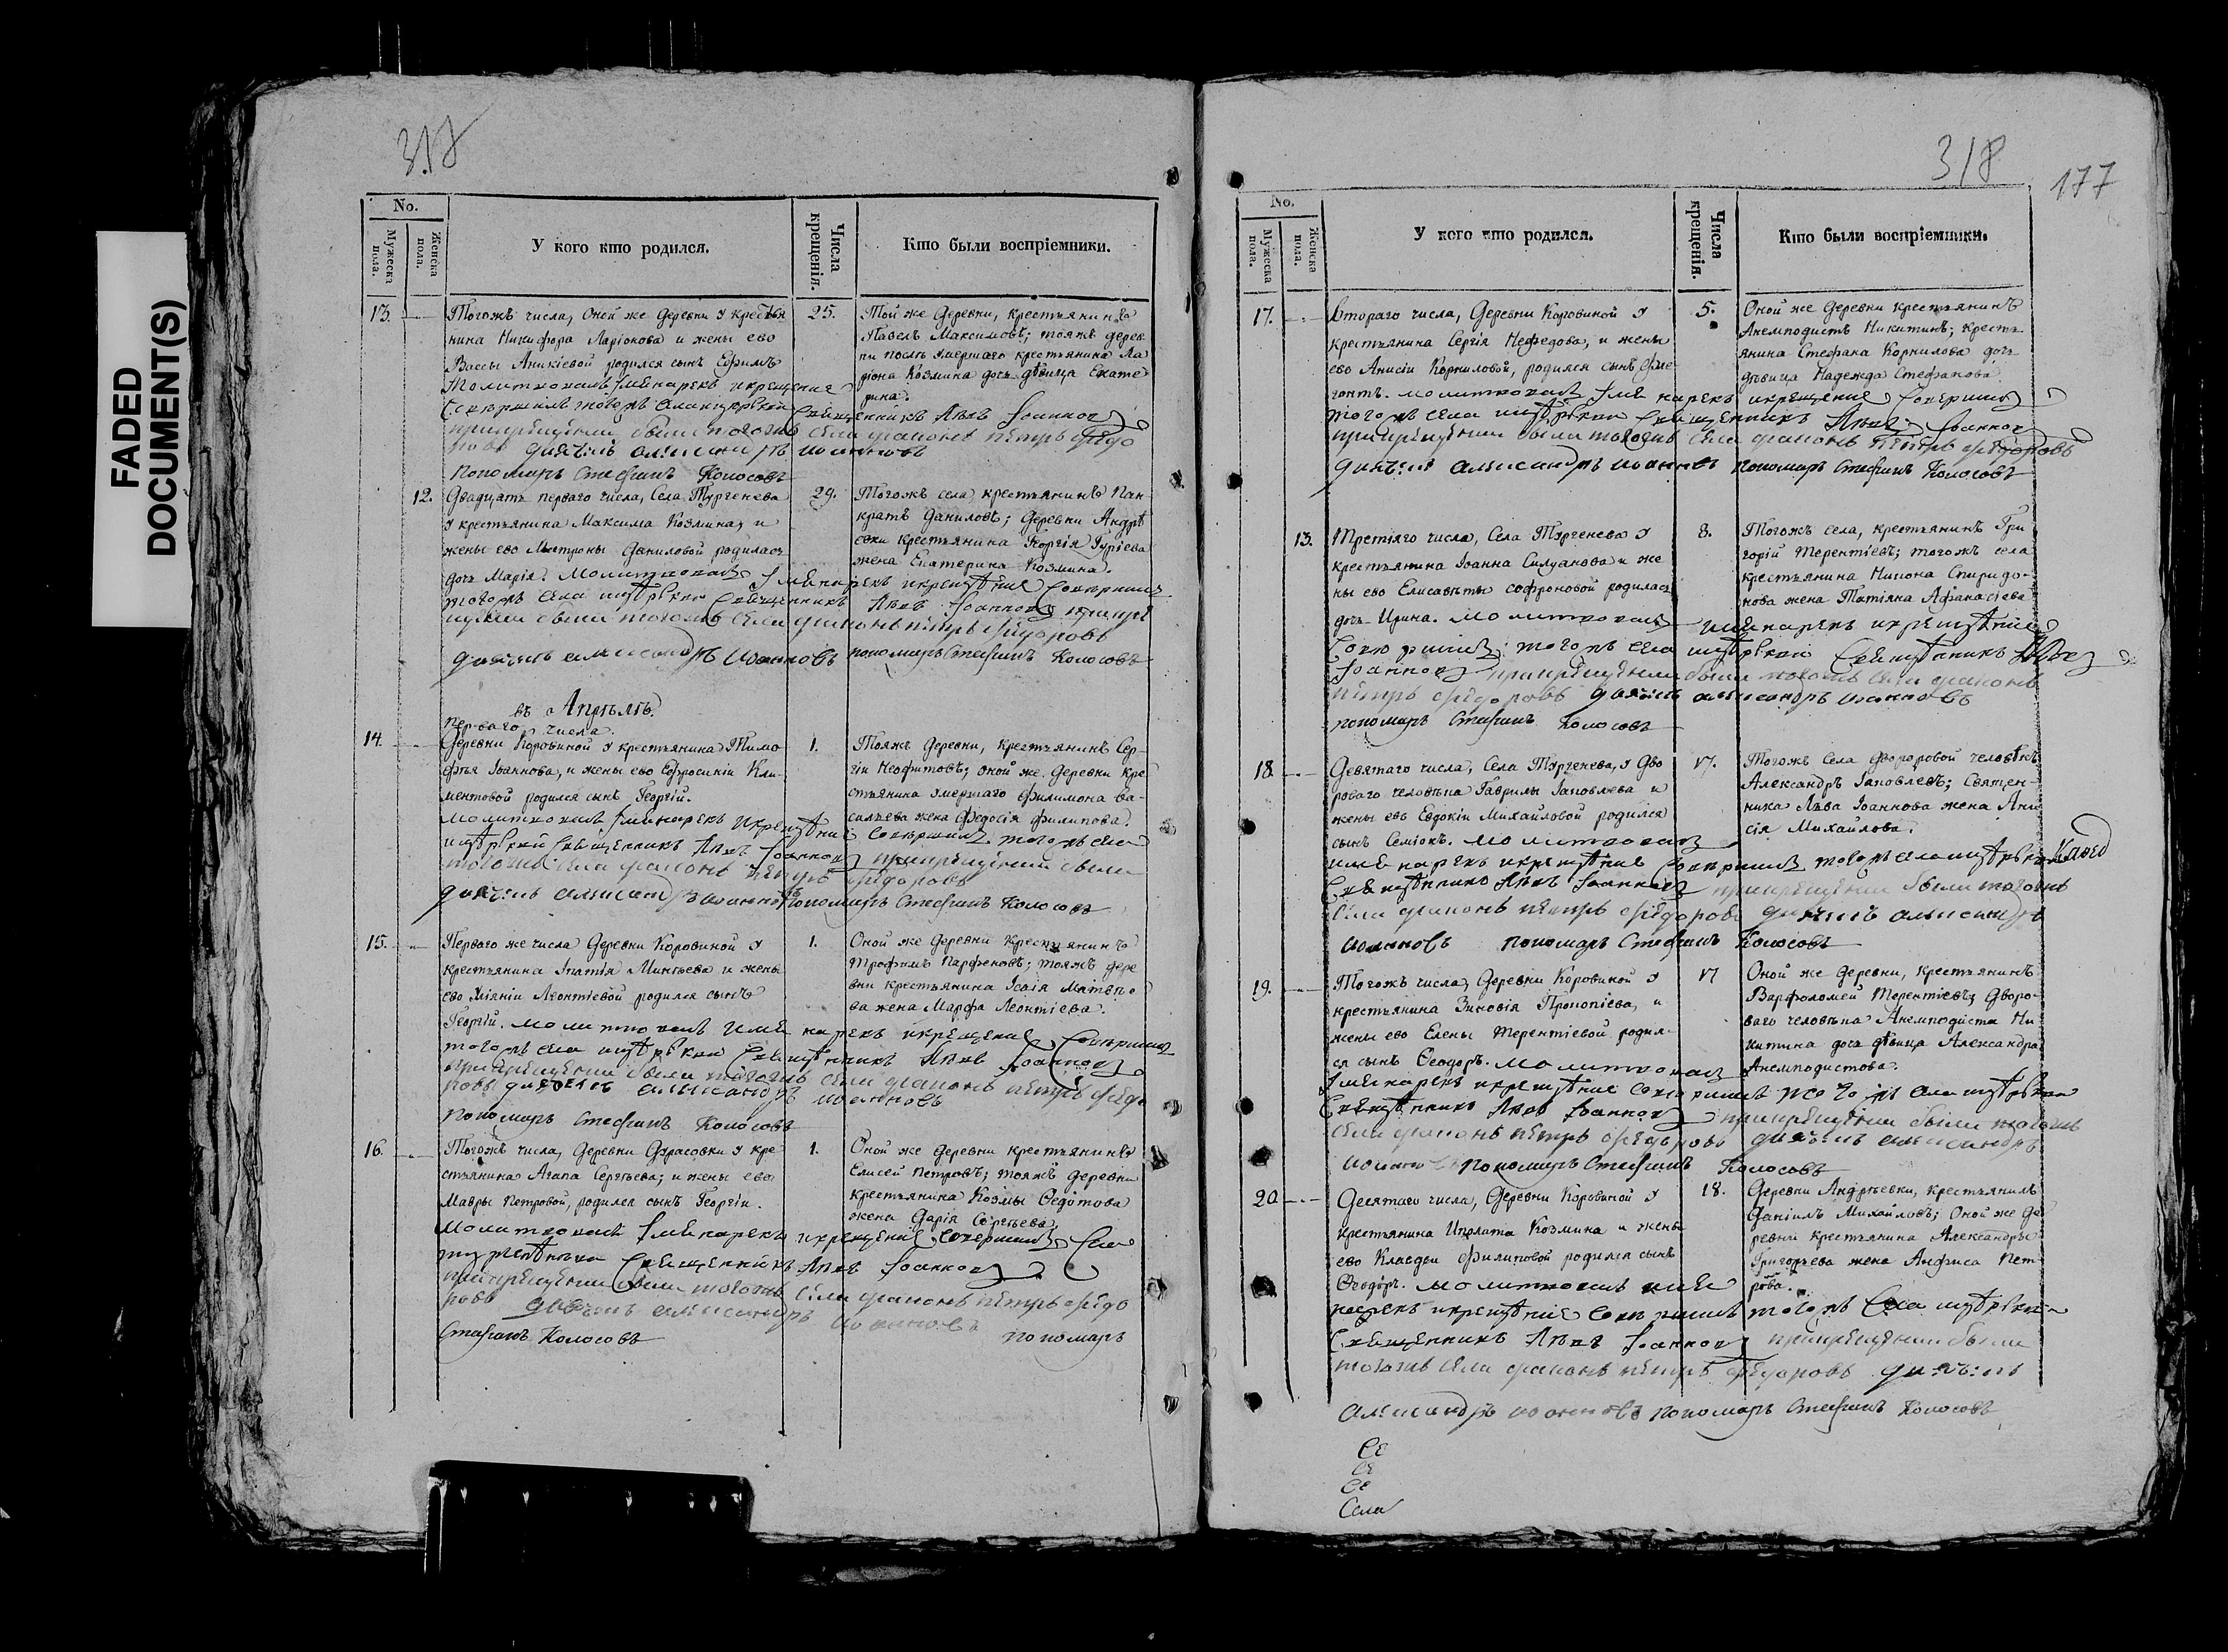 FADED
DOCUMENT(S)
317
No.
Мужеска пола.
Женска пола.
У кого кто родился.
Числа крещенія.
Кто были воспріемники.
13.
Тогожъ числа, Оной же деревни у крестья
нина Никифора Ларіонова и жены ево
Вассы Аникіевой родился сынъ Ефимъ
Молитвовалъ имя нарекъ и крещение
Совершилъ тогожъ села Священникъ Левъ Іоанновъ
при крещении были тогожъ села діаконъ Петръ Федо
ровъ дьячекъ Александръ Иоанновъ
пономарь Стефанъ Колосовъ
25.
Той же деревни, крестьянинъ
Павелъ Максимовъ; тояжъ дерев
ни послѣ умершаго крестьянина Ла
ріона Козмина дочь дѣвица Екате
рина.
12.
Двадцать перваго числа, Села Тургенева
у крестьянина Максима Козмина, и
жены ево Матроны Даниловой родилась
дочь Марія. Молитвовалъ имя нарекъ и крещение Совершилъ
тогожъ села Священникъ Левъ Іоанновъ при кре
щении были тогожъ села діаконъ Петръ Федоровъ
дьячекъ Александръ Иоанновъ пономарь Стефанъ Колосовъ
29.
Тогожъ села, крестьянинъ Пан
кратъ Даниловъ; Деревни Андрѣ
евки крестьянина Георгія Гуріева
жена Екатерина Козмина.
въ Апрѣлѣ.
Перваго числа.
14.
Деревни Коровиной у крестьянина Тимо
фѣя Іоаннова, и жены ево Ефросиніи Кли-
ментовой родился сынъ Георгій.
Молитвовалъ имя нарекъ и крещение Совершилъ тогожъ села
Священникъ Левъ Іоанновъ при крещении были
тогожъ села діаконъ Петръ Федоровъ
дьячекъ Александръ Иоанновъ пономарь Стефанъ Колосовъ
1.
Тояжъ деревни, крестьянинъ Сер-
гій Неофитовъ; оной же деревни кре
стьянина умершаго Филимона Ва-
сильева жена Федосія Филипова.
15.
Перваго же числа Деревни Коровиной у
крестьянина Ипатія Минѣева и жены
ево Леонтіевой родился сынъ
Георгій. Молитвовалъ имя нарекъ и крещение Совершилъ
тогожъ села Священникъ Левъ Іоанновъ
при крещении были тогожъ села діаконъ Петръ Федо
ровъ дьячекъ Александръ Иоанновъ
пономарь Стефанъ Колосовъ
1.
Оной же деревни крестьянинъ
Трофимъ Парфеновъ; тояжъ дере
вни крестьянина Ісаія Матвѣо
ва жена Марфа Леонтіева.
16.
Тогожъ числа, Деревни Дурасовки у кре
стьянина Агапа Сергѣева; и жены ево
Мавры Петровой, родился сынъ Георгій.
Молитвовалъ имя нарекъ и крещение Совершилъ Села
Тургенева Священникъ Левъ Іоанновъ
при крещении были тогожъ села діаконъ Петръ Федо
ровъ дьячекъ Александръ Иоанновъ
Стефанъ Колосовъ пономарь
1.
Оной же деревни крестьянинъ
Елисей Петровъ; тояжъ деревни
крестьянина Козмы Ѳедотова
жена Дарія Сергѣева.
318
177
No.
Мужеска пола.
Женска пола.
У кого кто родился.
Числа крещенія.
Кто были воспріемники.
17.
Втораго числа, Деревни Коровиной у
крестьянина Сергія Нефедова, и жены
ево Анисіи Корниловой, родился сынъ Фле-
гонтъ. Молитвовалъ имя нарекъ и крещение Совершилъ
тогожъ села Священникъ Левъ Іоанновъ
при крещении были тогожъ села діаконъ Петръ Федоровъ
дьячекъ Александръ Иоанновъ пономарь Стефанъ Колосовъ
5.
Оной же деревни крестьянинъ
Анемподистъ Никитинъ; кресть
янина Стефана Корнилова дочь
дѣвица Надежда Стефанова.
13.
Третіяго числа, Села Тургенева у
крестьянина Іоанна Силуанова и же
ны ево Елисаветы Софроновой родилась
дочь Ирина. Молитвовалъ имя нарекъ и крещение
Совершилъ тогожъ села Священникъ Левъ
Іоанновъ при крещении были тогожъ села діаконъ
Петръ Федоровъ дьячекъ Александръ Иоанновъ
пономарь Стефанъ Колосовъ
8.
Тогожъ села, крестьянинъ Гри
горій Терентіевъ; тогожъ села
крестьянина Никона Спиридо-
нова жена Татіана Афанасіева
18.
Девятаго числа, Села Тургенева, у Дво
роваго человѣка Гаврилы Іаковлева и
жены ево Евдокіи Михайловой родился
сынъ Семіонъ. Молитвовалъ
имя нарекъ и крещение Совершилъ тогожъ села
Священникъ Левъ Іоанновъ при крещении были тогожъ
села діаконъ Петръ Федоровъ дьячекъ Александръ
Иоанновъ пономарь Стефанъ Колосовъ
17.
Тогожъ Села дворовой человѣкъ
Александръ Іаковлевъ; Священ-
ника Льва Іоаннова жена Ани
сія Михайлова.
19.
Тогожъ числа, Деревни Коровиной у
крестьянина Зиновія Прокопіева, и
жены ево Елены Терентіевой родил-
ся сынъ Ѳеодоръ. Молитвовалъ
имя нарекъ и крещение Совершилъ тогожъ села
Священникъ Левъ Іоанновъ при крещении были тогожъ
села діаконъ Петръ Федоровъ дьячекъ Александръ
Иоанновъ пономарь Стефанъ Колосовъ
17
Оной же деревни, крестьянинъ
Варфоломей Терентіевъ; Дворо-
ваго человѣка Анемподиста Ни-
китина дочь дѣвица Александра
Анемподистова.
20
Десятаго числа, Деревни Коровиной у
крестьянина Иполата Козмина и жены
ево Клавдеи Филиповой родился сынъ
Ѳеодоръ. Молитвовалъ имя
нарекъ и крещение Совершилъ тогожъ Села
Священникъ Левъ Іоанновъ при крещении были
тогожъ села діаконъ Петръ Федоровъ дьячекъ
Александръ Иоанновъ пономарь Стефанъ Колосовъ
18.
Деревни Андрѣевки, крестьянинъ
Даніилъ Михайловъ; Оной же де
ревни крестьянина Александра
Григорьева жена Анфиса Пет
рова.
Се
Се
Се
Села